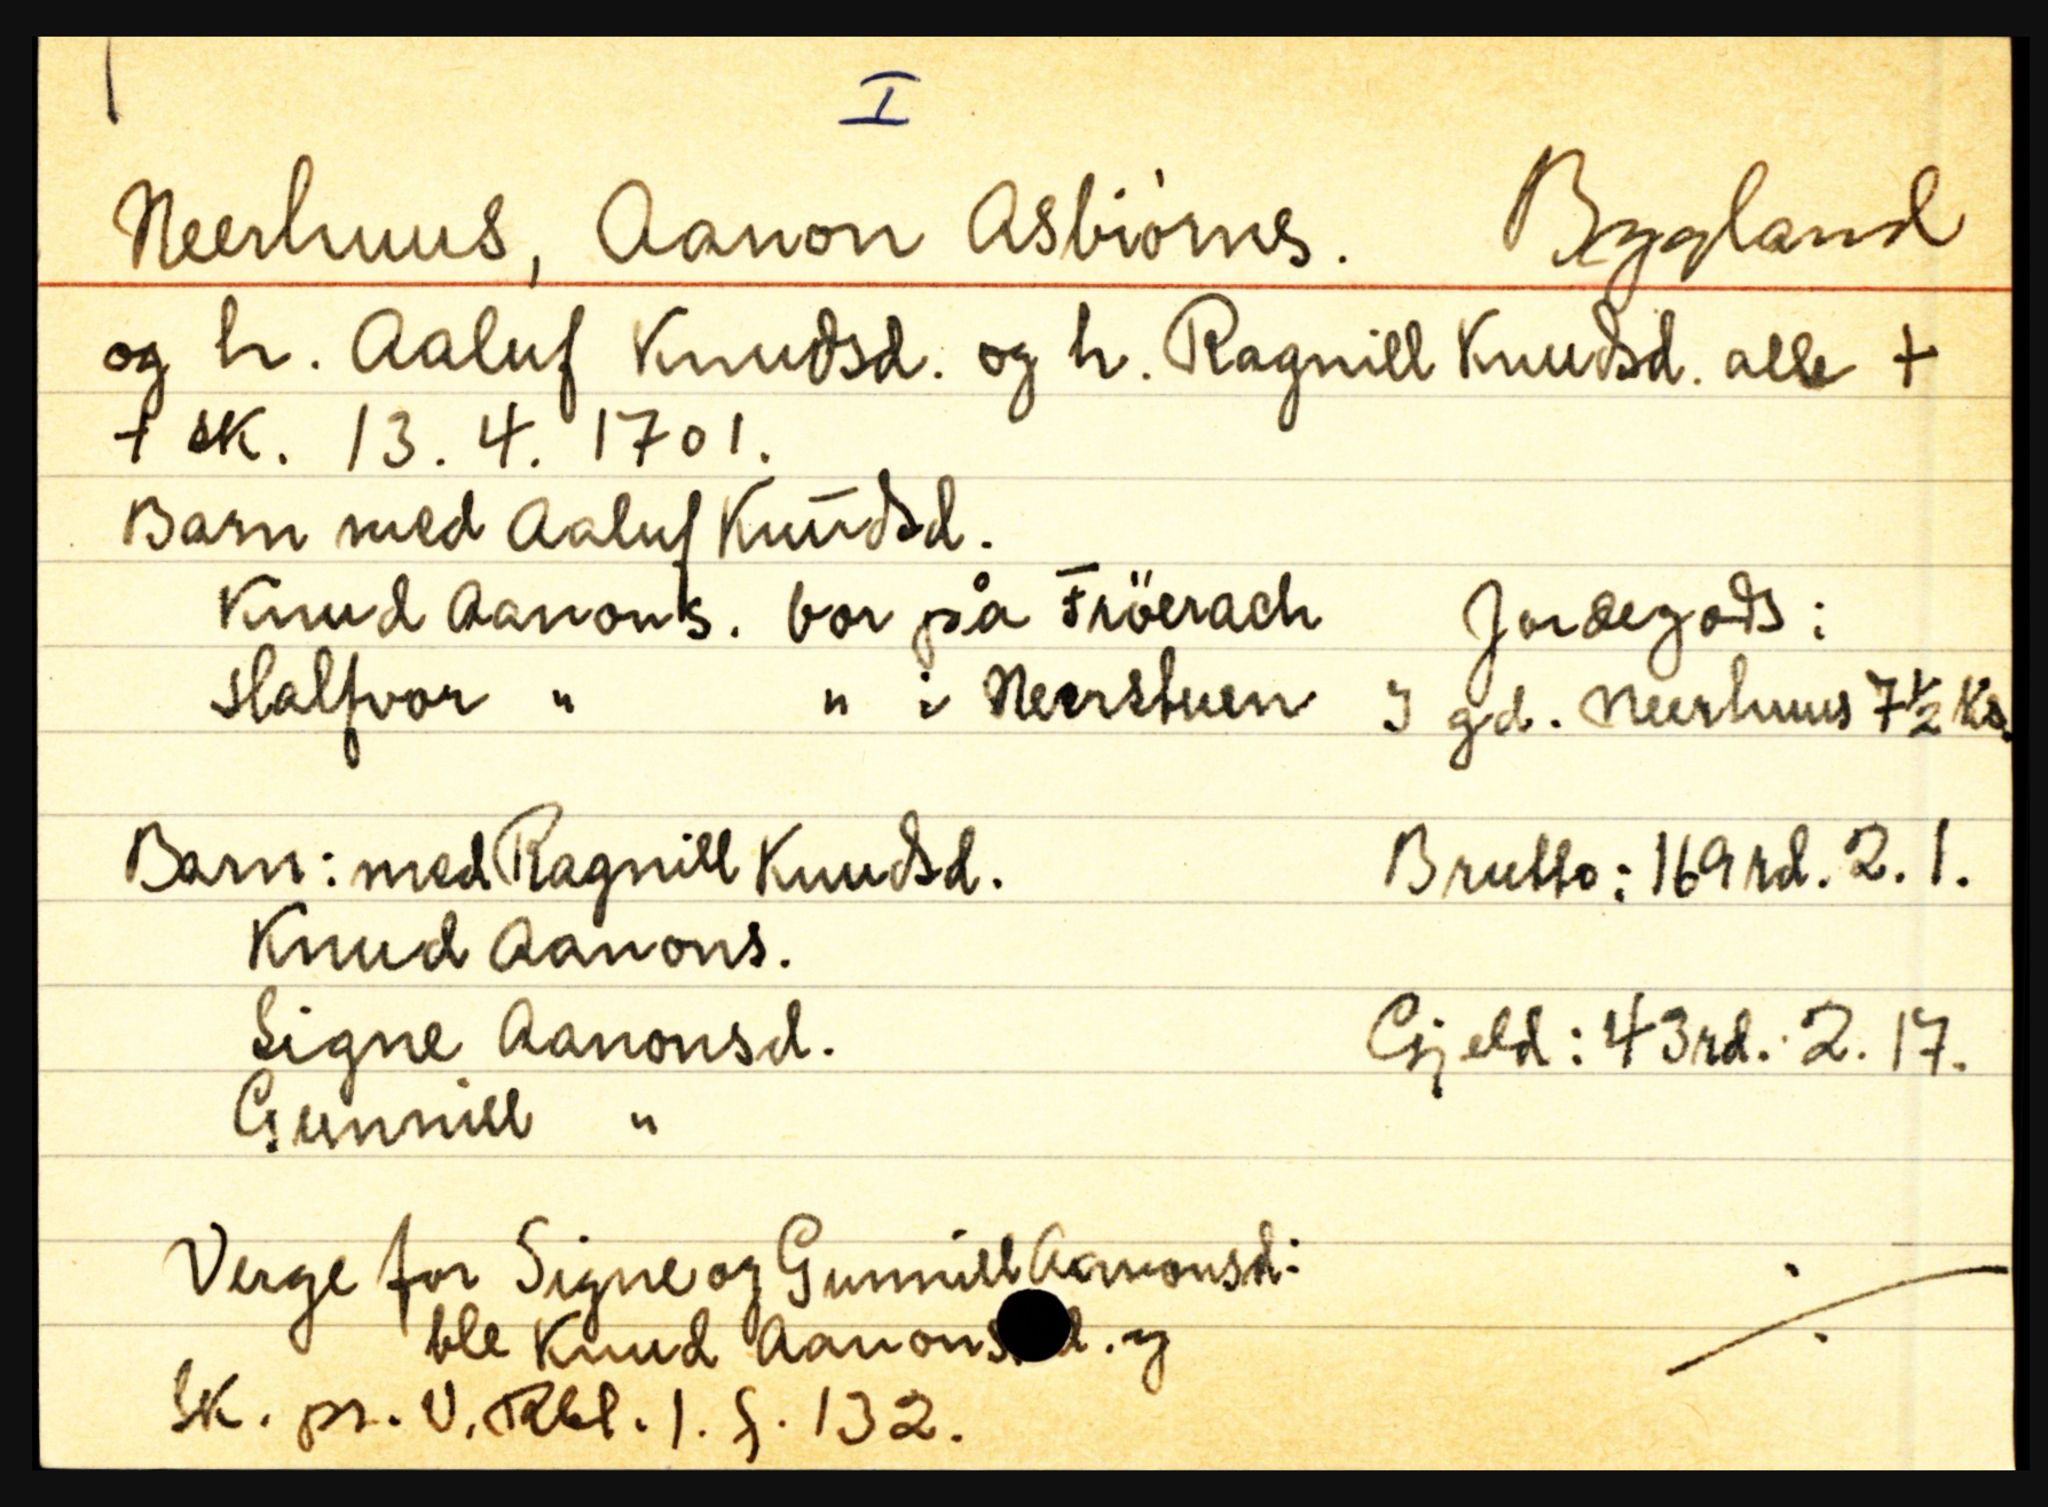 I
Neerhuus, Aanon Asbiörns. Bygland
og h. Aaluf Knudsd. og h. Ragnill Knudsd. alle +
+ sk. 13.4.1701.
Barn med Aaluf Knudsd.
Knud Aanons. bor på Fröerach Jordegods:
Halfvor " " i Neerstuen I gd. Neerhuus 7 1/2 Ks.
Barn: med Ragnill Knudsd. Brutto: 169 rd. 2. 1.
Knud Aanons.
Signe Aanonsd. Gjeld: 43 rd. 2. 17.
Gunnill "
Verge for Signe og Gunnill Aanonsd:
ble Knud Aanons. d. y
Sk. pr. V. Rbl. 1. S. 132.